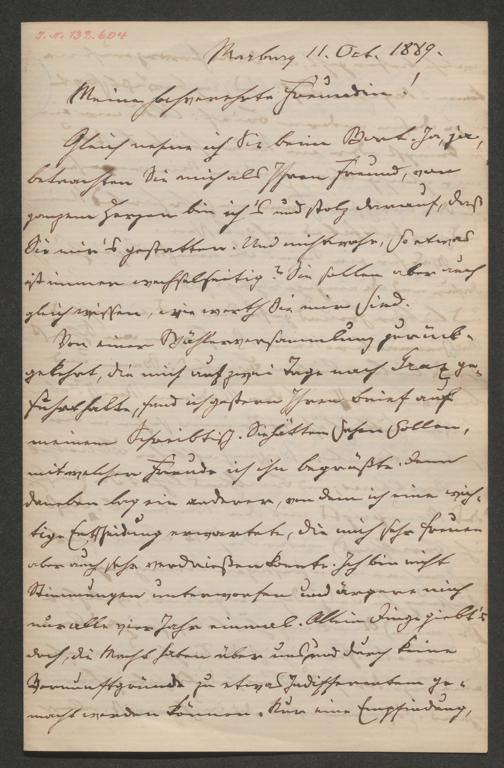 J. N. 132.604
Marburg 11. Oct. 1889.
Meine hochverehrte Freundin!
Gleich nehme ich Sie beim Wort. Ja, ja,
betrachten Sie mich als Ihren Freund, von
ganzem Herzen bin ich's und stolz darauf, daß
Sie mir's gestatten. Und nicht wahr, so etwas
ist immer wechselseitig? Sie sollen aber auch
gleich wissen, wie werth Sie mir sind.
Von einer Wählerversammlung zurück-
gekehrt, die mich auf zwei Tage nach Graz ge-
führt hatte, fand ich gestern Ihren Brief auf
meinem Schreibtisch. Sie hätten sehen sollen,
mit welcher Freude ich ihn begrüßte. Denn
daneben lag ein anderer, von dem ich eine wich-
tige Entscheidung erwartete, die mich sehr freuen
aber auch sehr verdrießen konnte. Ich bin nicht
Stimmungen unterworfen und ärgere mich
nur alle vier Jahr einmal. Allein Dinge giebt's
doch, die Macht haben über uns und durch keine
Vernunftgründe zu etwas Indifferentem ge-
macht werden können. Nur eine Empfindung,